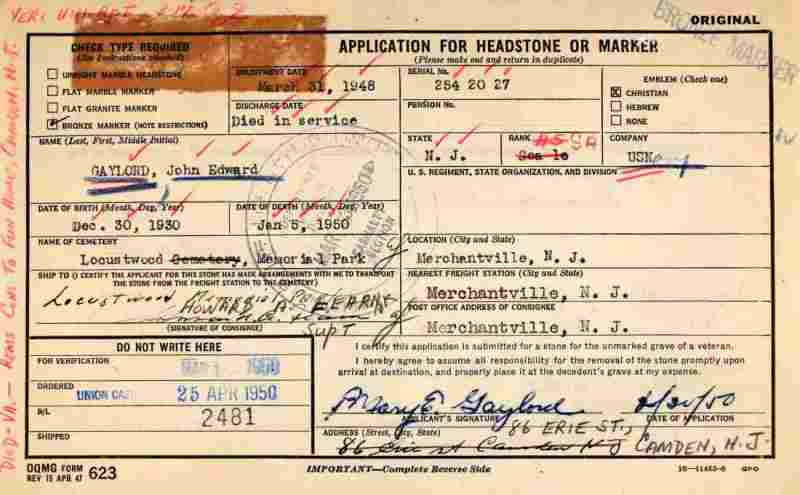 ORIGINAL
BRONZE MARKER
CHECK TYPE REQUIRED
(See Instructions attached)
UPRIGHT MARBLE HEADSTONE
FLAT MARBLE MARKER
FLAT GRANITE MARKER
BRONZE MARKER (NOTE RESTRICTIONS)
APPLICATION FOR HEADSTONE OR MARKER
(Please make out and return in duplicate)
ENLISTMENT DATE
March 31, 1948
DISCHARGE DATE
Died in service
SERIAL No.
254 20 27
PENSION No.
EMBLEM (Check one)
CHRISTIAN
HEBREW
NONE
NAME (Last, First, Middle Initial)
GAYLORD, John Edward
STATE
N. J.
RANK
SA
COMPANY
USN
U. S. REGIMENT, STATE ORGANIZATION, AND DIVISION
DATE OF BIRTH (Month, Day, Year)
Dec. 30, 1930
DATE OF DEATH (Month, Day, Year)
Jan 5, 1950
NAME OF CEMETERY
Locustwood Cemetery, Memorial Park
LOCATION (City and State)
Merchantville, N. J.
SHIP TO (I CERTIFY THE APPLICANT FOR THIS STONE HAS MADE ARRANGEMENTS WITH ME TO TRANSPORT
THE STONE FROM THE FREIGHT STATION TO THE CEMETERY)
Locustwood Memorial Pk
HOWARD A. FEARN
Supt
(SIGNATURE OF CONSIGNEE)
NEAREST FREIGHT STATION (City and State)
Merchantville, N. J.
POST OFFICE ADDRESS OF CONSIGNEE
Merchantville, N. J.
DO NOT WRITE HERE
FOR VERIFICATION
1950
ORDERED
UNION
25 APR 1950
B/L
2481
SHIPPED
I certify this application is submitted for a stone for the unmarked grave of a veteran.
I hereby agree to assume all responsibility for the removal of the stone promptly upon
arrival at destination, and properly place it at the decedent's grave at my expense.
Mary E. Gaylord
APPLICANT'S SIGNATURE
DATE OF APPLICATION
ADDRESS (Street, City, State)
86 ERIE ST.,
86 Erie st Camden N J
CAMDEN, N. J.
OQMG FORM
REV 15 APR 47
623
IMPORTANT—Complete Reverse Side
16—11453-6 GPO